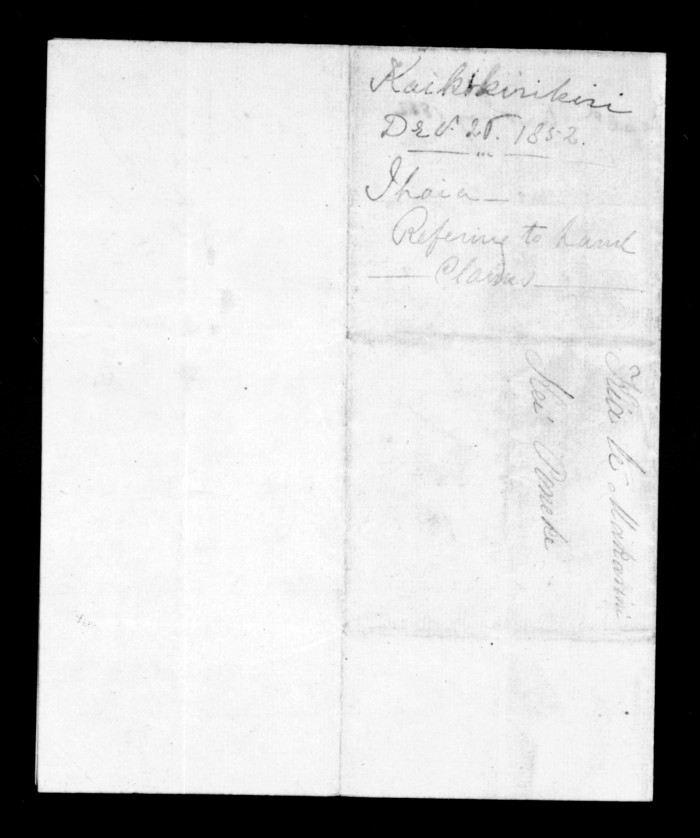 Kaikokirikiri
Decr. 25. 1852.
Ihaia
Refering to Land
Claims
Kia te Makarini
Kei Poneke